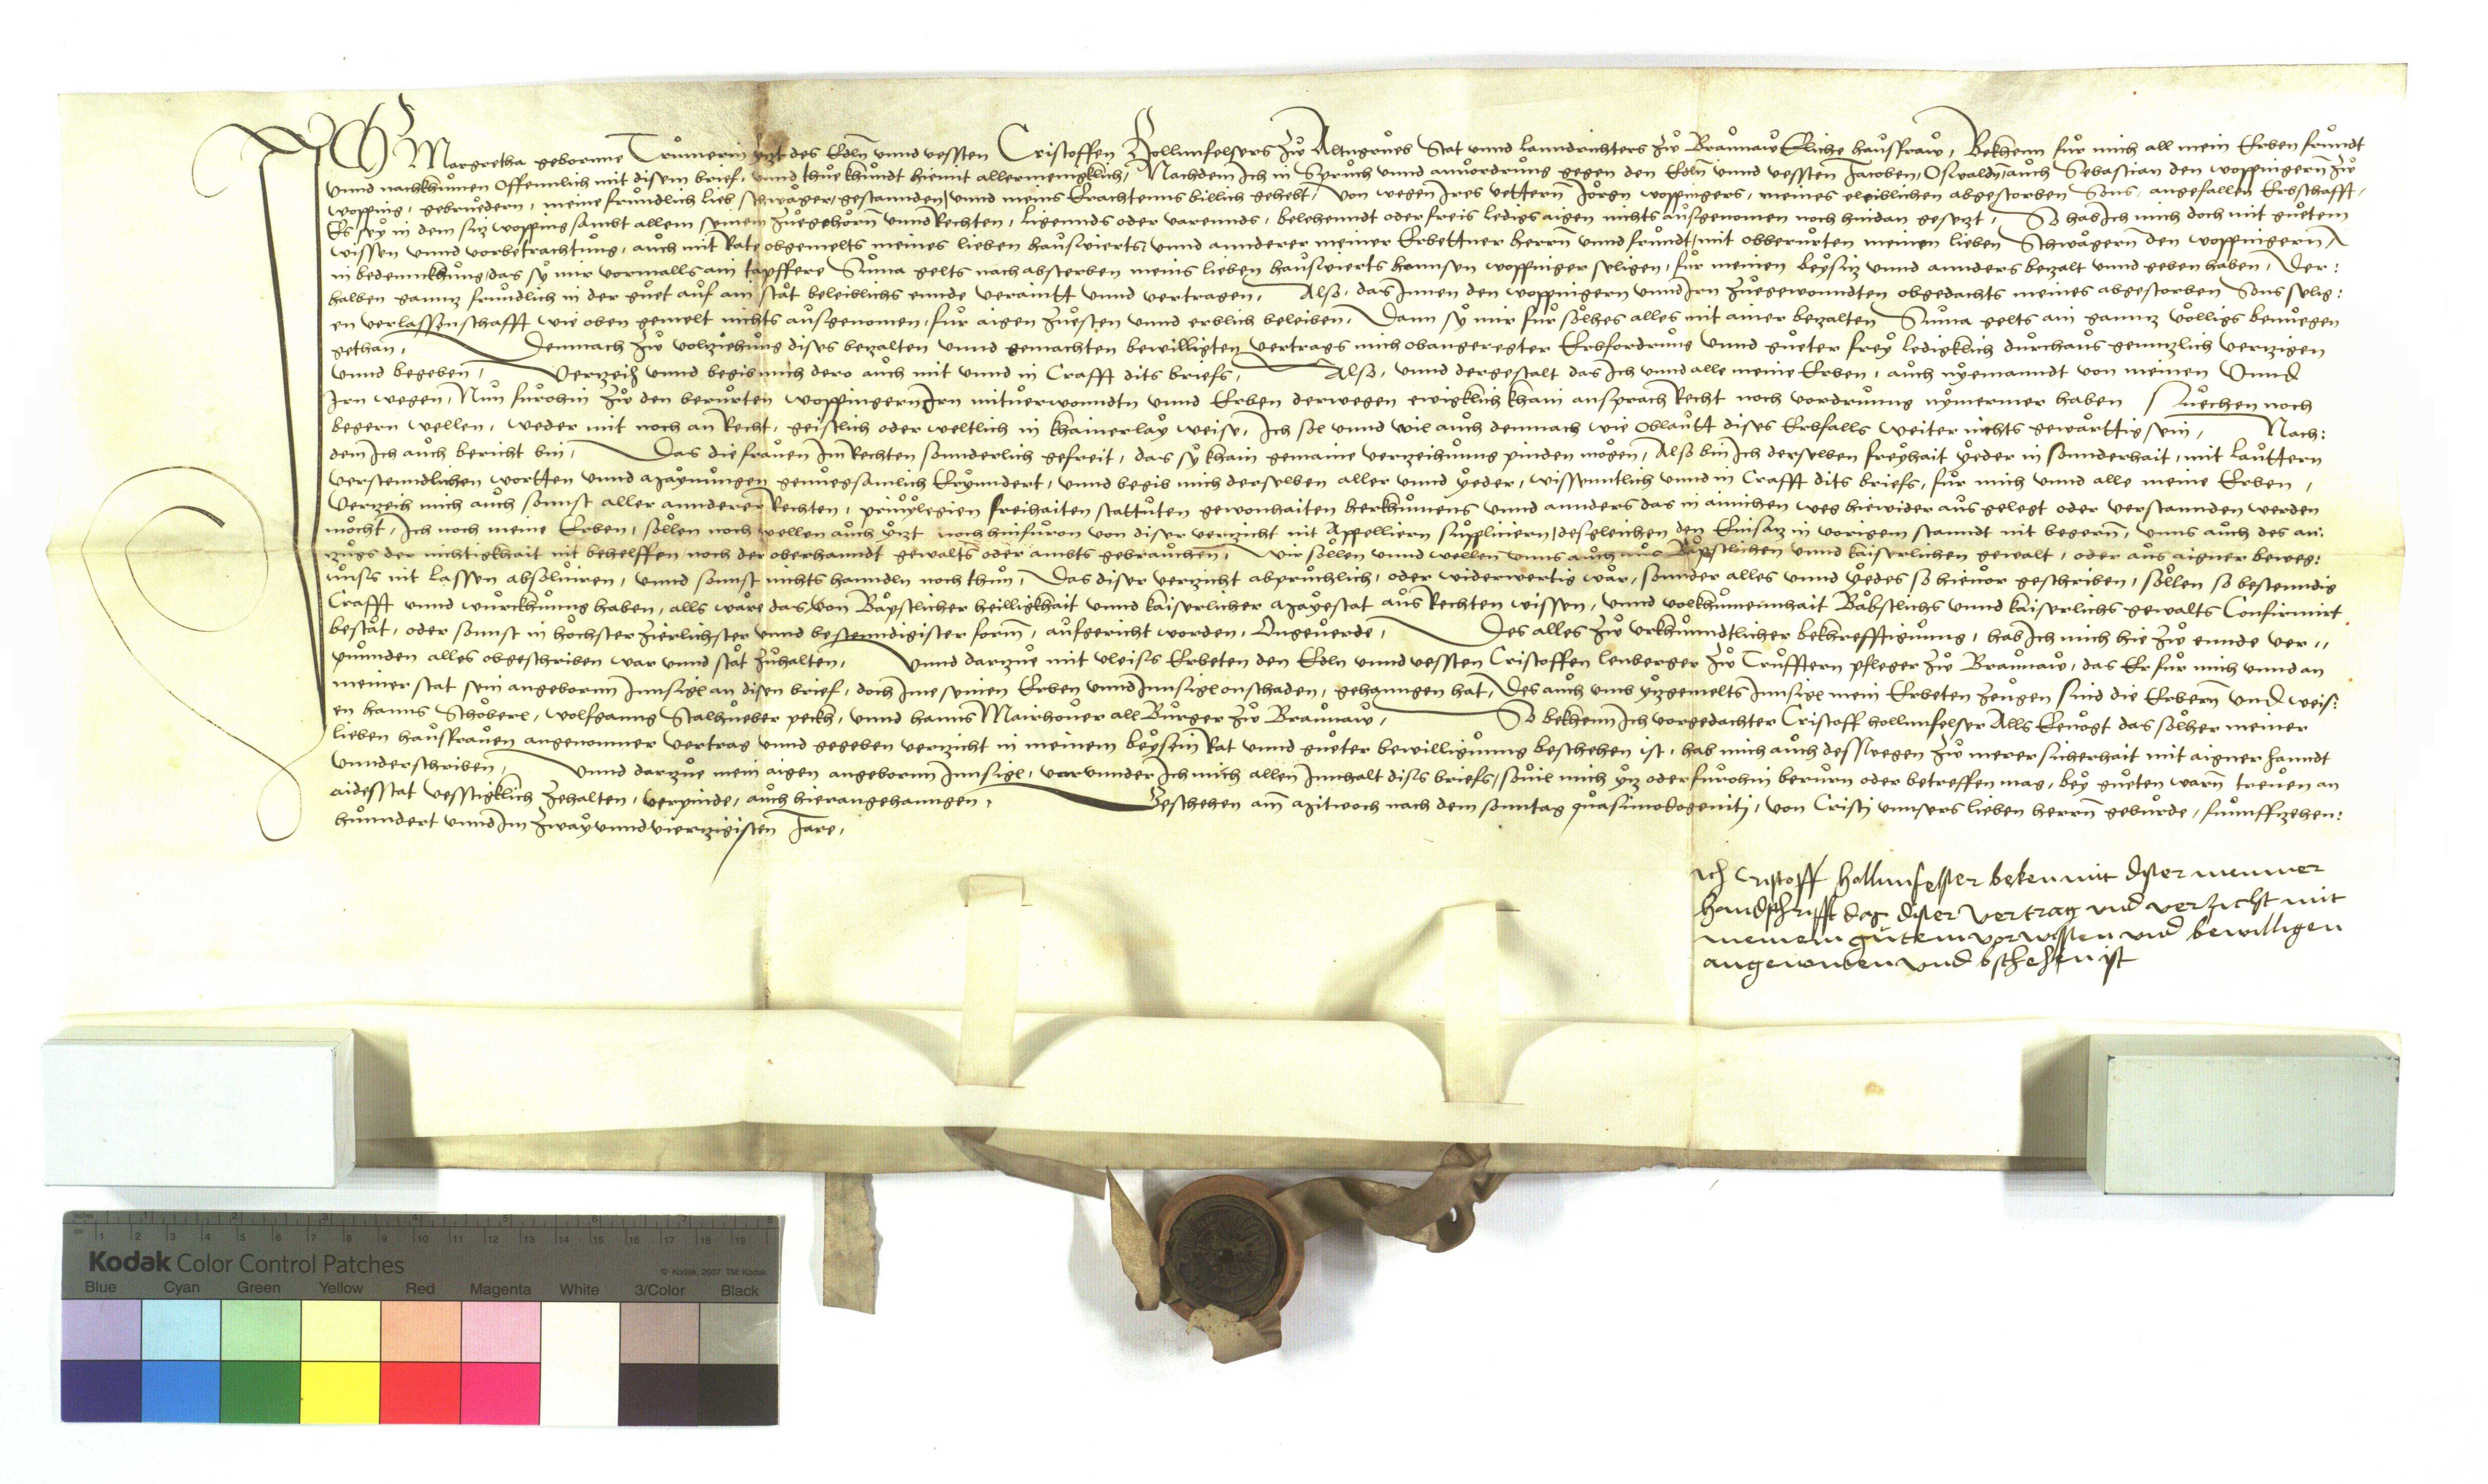 ICh Margretha gebornne Trunerin yzt des Edln vnnd vessten Cristoffen Hollunfelsers zw Altngroues Stat vnnd lanndrichters zw Braunaw Eliche hausfraw, Bekhenn für mich all mein Erben freundt
vnnd nachkhumen Offennlich mit disem brief, vnnd thue khundt hiemit allermenigklich, Nachdem Ich in Spruch vnnd anuordrung gegen den Edln vnnd vessten Jacoben, Oswaldn, auch Sebastian den woppingern zw
wopping, gebruedern, meine freundlich lieb schwäger, gestannden, vnnd meins Erachtenns billich gehebt, Von wegen Ires vettern Jörgn woppingers, meines eleiblichen abgestorben Sons, angefallen Erbschafft,
Es sey in dem siz wopping sambt allem seinem zuegehörn vnnd Rechten, ligennds oder varennds, belehenndt oder freis ledigs aigen nichts ausgenomen noch hindan gesetzt, So hab Ich mich doch mit guetem
wissen vnnd vorbetrachtung, auch mit Rate obgemelts meines lieben hauswierts, vnnd annderer meiner Erbettner herrn vnnd freundt, mit obberürten meinen lieben Schwägern den woppingern,
in bedennckhung, das sy mir vormalls ain tapffere Suma gelts nach absterben meins lieben hauswierts hannsen woppinger seligen, für meinen beysiz vnnd annders bezalt vnnd geben haben, Der:
halben gannz freundlich in der guet auf ain stät beleiblichs ennde veraintt vnnd vertragen, Also, das Innen den woppingern vnnd Irn zuegewonndten obgedachts meines abgestorben Sons selig:
en verlassenschafft wie oben gemelt nichts ausgenomen, für aigen zuesten vnnd erblich beleiben, Dann sy mir für solhes alles mit ainer bezalten Suma gelts ain gannz völligs benuegen
gethan, Demnach zw volziehung dises bezalten vnnd gemachten bewilligten vertrags mich obangeregter Erbfordrung vnnd güeter frey ledigklich durchaus genntzlich verzigen
vnnd begeben, Verzeich vnnd begib mich dero auch mit vnnd in Crafft dits briefs, Also, vnnd dergestalt das Ich vnnd alle meine Erben, auch nyemanndt von meinen Vnnd
Irn wegen, Nun fürohin zw den berürten woppingern Irn mituerwonndtn vnnd Erben derwegen ewigklich khain ansprach Recht noch vordrung nymermer haben suechen noch
begern wellen, weder mit noch an Recht, geistlich oder weltlich in khainerlay weise, Ich sol vnnd wil auch demnach wie oblautt dises Erbfalls weiter nichts gewarttig sein, Nach:
dem Ich auch bericht bin, Das die frauen Im Rechten sonnderlich gefreit, das sy khain gemaine verzeihnung pinden mögen, Also bin Ich derselben freyhait yeder in sonnderhait, mit lauttern
verstenndlichen wortten vnnd maynungen genuegsamlich Erynndert, vnnd begib mich derselben aller vnnd yeder, wissenntlich vnnd in Crafft dits briefs, für mich vnnd alle meine Erben,
Verzeich mich auch sonnst aller annderer Rechten, priuylegien freihaiten stattuten gewonhaiten herkhumens vnnd annders das in ainichen weg hiewider ausgelegt oder verstannden werden
möcht, Ich noch meine Erben, sollen noch wellen auch yzt noch hinfüron von diser verzicht nit Appelliern supliciern, desgleichen den Einsaz in vorigem stanndt nit begern, vnns auch des an:
zugs der nichtigkhait nit behelffen noch der oberhanndt gewalts oder ambts gebrauchen, Wir sollen vnnd wellen vnns auch aus Bäpstlichen vnnd kaiserlichen gewalt, oder aus aigner beweg:
nuss nit lassen absoluiren, vnnd sonnst nichts hanndln noch thun, Das diser verzicht abpruchlich, oder widerwertig wär, sonnder alles vnnd yedes so hieuor geschriben, sollen so bestenndig
Crafft vnnd würckhung haben, alls wäre das von Bäpstlicher heilligkhait vnnd kaiserlicher mayestat aus Rechten wissen, vnnd volkhumennhait Bäbstlichs vnnd kaiserlichs gewalts Confirmirt
bestät, oder sonnst in höchster zierlichster vnnd bestenndigister form, aufgericht worden, Ongeuerde, Des alles zw vrkhunndtlicher bekhrefftigung, hab Ich mich hie zw ennde ver,,
punnden alles obgeschriben war vnnd stät zuhalten, Vnnd darzue mit vleiss Erbeten den Edln vnnd vessten Cristoffen lenberger zw Trufftern pfleger zw Braunaw, das Er für mich vnnd an
meiner stat sein angeborn Innsigl an disen brief, doch Ime seinen Erben vnnd Innsigl onschaden, gehanngen hat, Des auch vmb yzgemelts Innsigl mein Erbeten zeugen sind die Erbern vnd weis:
en hanns Schoberl, wolfganng Stalhueber peckh, vnnd hanns Mairhouer all Burger zw Braunaw, So bekhenn Ich vorgedachter Cristoff hollunfelser Alls Eeuogt das solher meiner
lieben hausfrauen angenomner vertrag vnnd gegeben verzicht in meinem beysein Rat vnnd gueter bewilligung beschehen ist, hab mich auch desswegen zw merer sicherhait mit aigner hanndt
vnnderschriben, Vnnd darzue mein aigen angeborn Innsigl, dar vnnder Ich mich allen Innhalt diss briefs, souil mich yz oder fürohin berürn oder betreffen mag, bey gueten warn treuen an
aidesstat vesstigklich zehalten, verpinde, auch hieran gehanngen, Beschehen am mitwoch nach dem sonntag quasimodogeniti, von Cristj vnnsers lieben herrn geburde, funffzehen:
hunndert vnnd Im zway vnnd vierzigisten Jare,
Ich Cristoff hollunfelser beken mit diser meiner
handschrifft das diser vertrag vnd verzicht mit
meinem gutem vorwissen vnd bewilligen
angenomen vnd bschehen ist
inches 1 2 3 4 5 6 7 8
cm 1 2 3 4 5 6 7 8 9 10 11 12 13 14 15 16 17 18 19
Kodak Color Control Patches
© Kodak, 2007 TM: Kodak
Blue Cyan Green Yellow Red Magenta White 3/Color Black